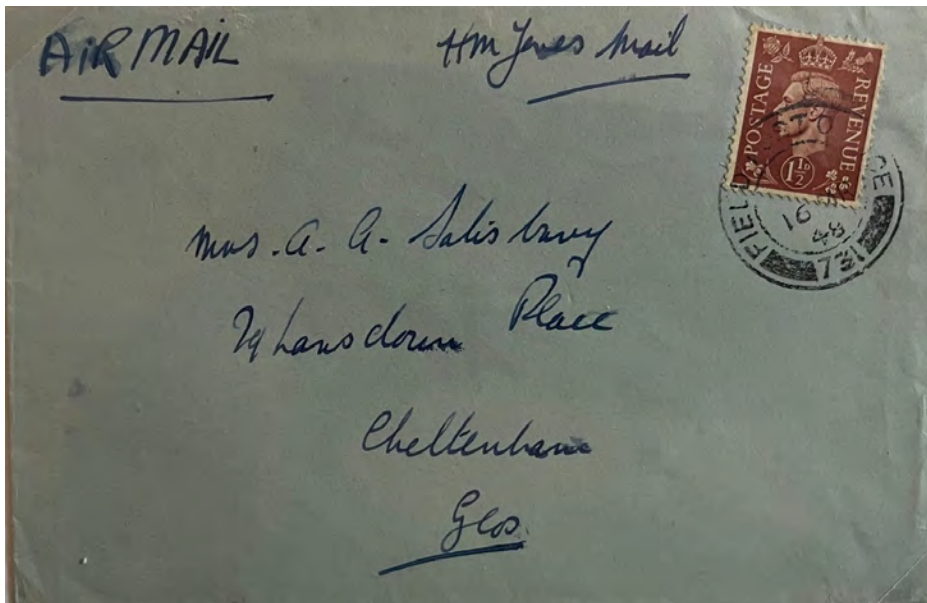 AiR MAIL
HM Forces Mail
POSTAGE REVENUE
1½D
FIEL
CE
16
48
731
Mrs. A. A. Salisbury
29 Lansdown Place
Cheltenham
Glos.